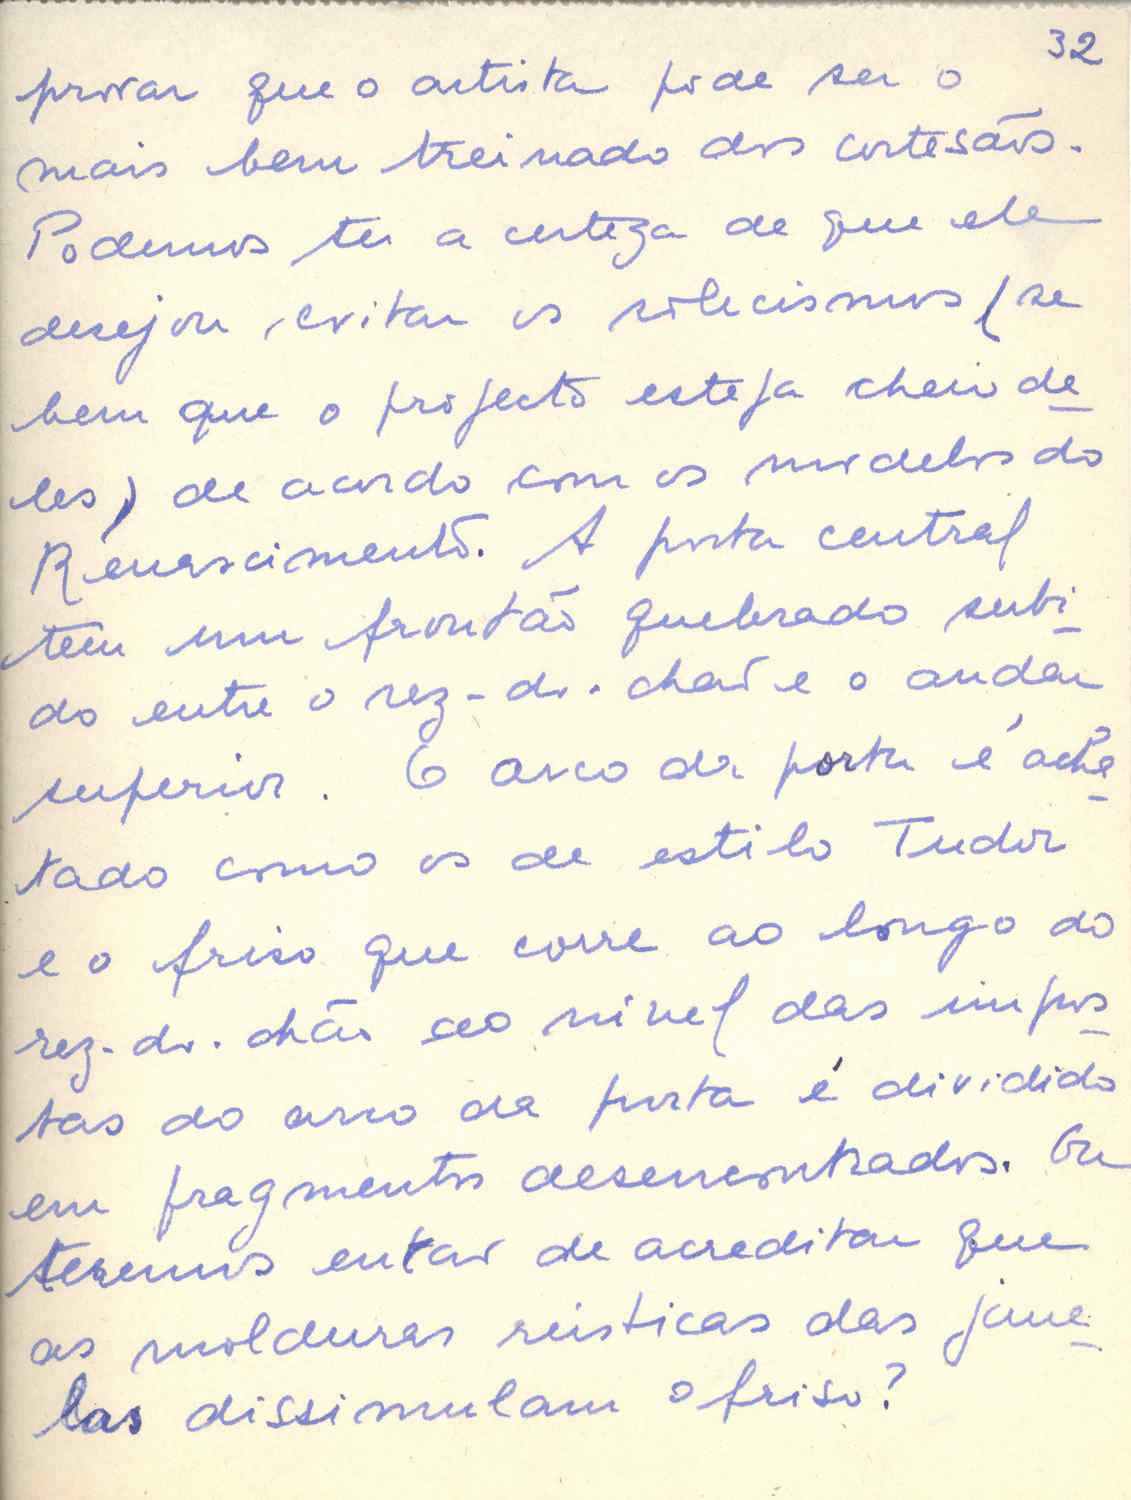 32
provar que o artista pode ser o
mais bem treinado dos cortesãos.
Podemos ter a certeza de que ele
desejou evitar os solecismos (se
bem que o projecto esteja cheio de
les) de acordo com os modelos do
Renascimento. A porta central
tem um frontão quebrado subi
do entre o rez-do-chão e o andar
superior. O arco da porta é acha
tado como os de estilo Tudor
e o friso que corre ao longo do
rez-do-chão ao nivel das impos
tas do arco da porta é dividido
em fragmentos desencontrados. Ou
teremos entao de acreditar que
as molduras rústicas das jane
las dissimulam o friso?